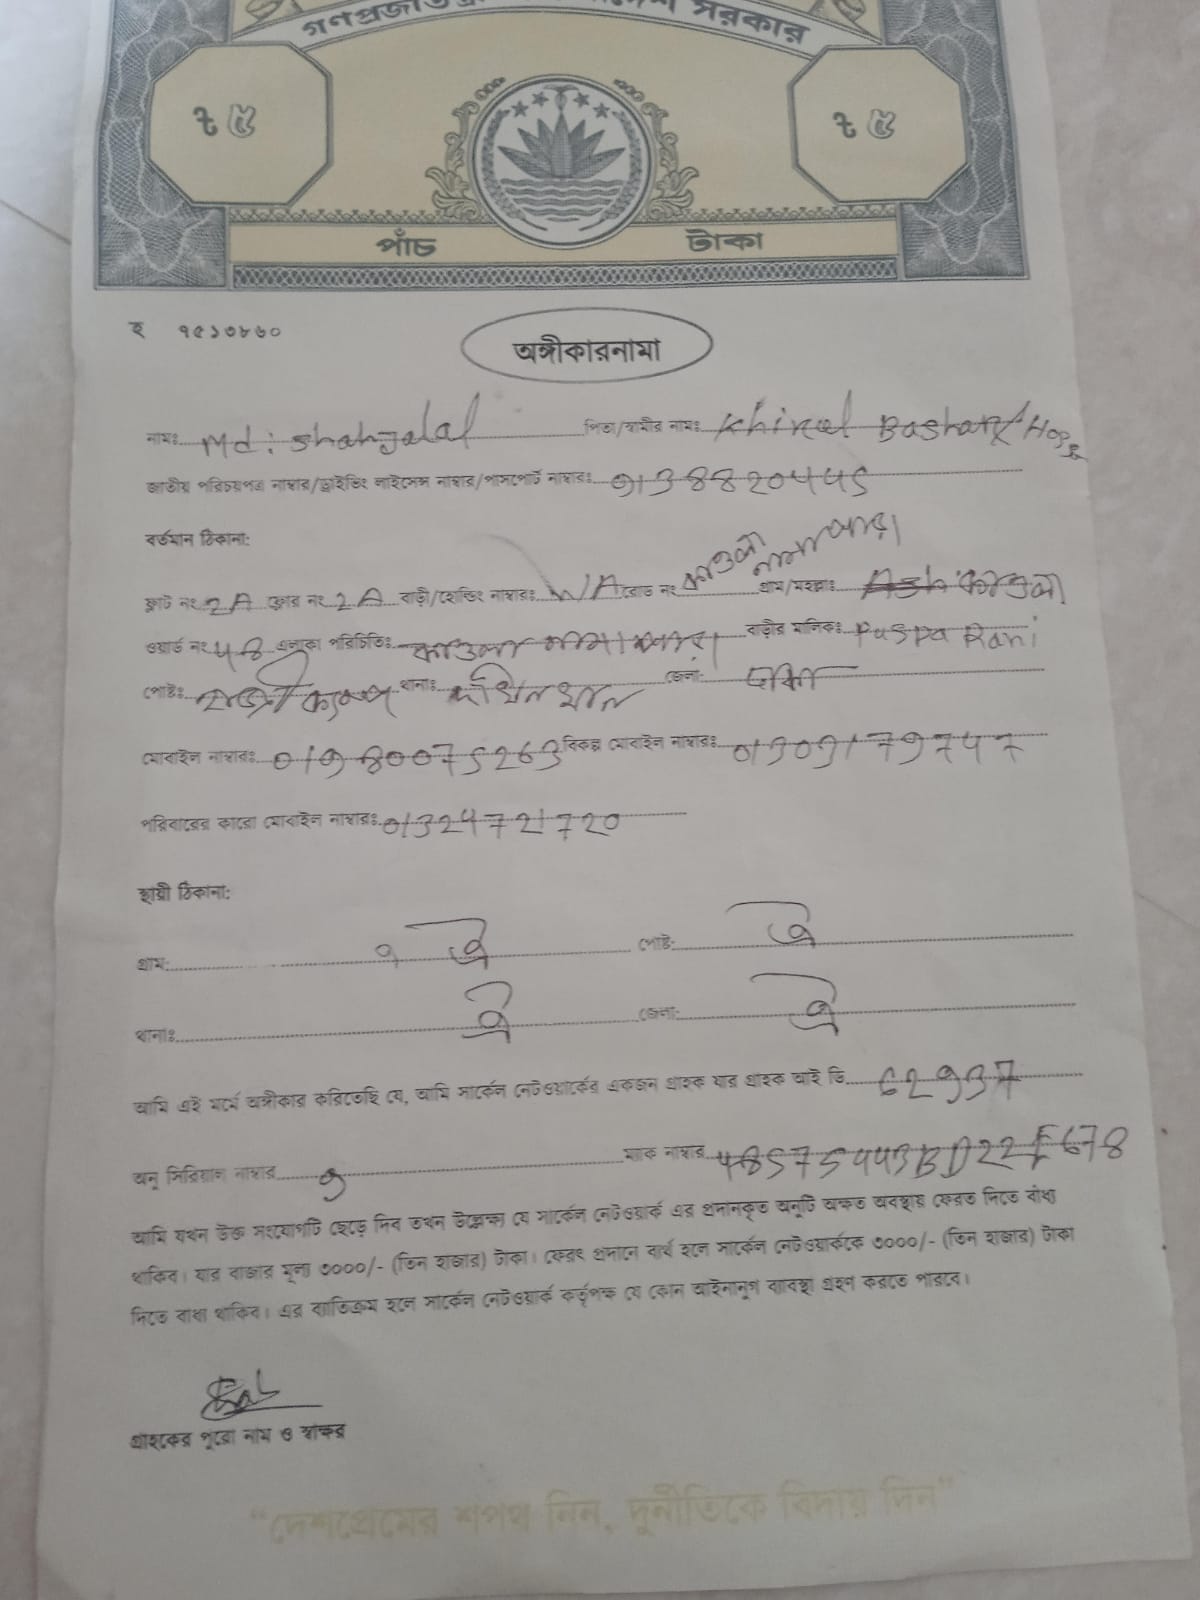 গণপ্রজাতন্ত্রী বাংলাদেশ সরকার
৳ ৫ ৳ ৫
পাঁচ টাকা
ছ ৭৫১৩৮৬০
অঙ্গীকারনামা
নামঃ Md: Shahjalal পিতা/স্বামীর নামঃ Bashar
জাতীয় পরিচয়পত্র নাম্বার/ড্রাইভিং লাইসেন্স নাম্বার/পাসপোর্ট নাম্বারঃ
বর্তমান ঠিকানা:
ফ্লাট নং 2A ফ্লোর নং 2A বাড়ী/হোল্ডিং নাম্বারঃ N/A রোড নং কাওলা নামাপাড়া গ্রাম/মহল্লাঃ কাওলা
ওয়ার্ড নং 48 এলাকা পরিচিতিঃ কাওলা নামাপাড়া বাড়ীর মালিকঃ Puspa Rani
পোষ্টঃ থানাঃ দক্ষিনখান জেলা: ঢাকা
মোবাইল নাম্বারঃ 01980075263 বিকল্প মোবাইল নাম্বারঃ
পরিবারের কারো মোবাইল নাম্বারঃ 01324721720
স্থায়ী ঠিকানা:
গ্রাম: ঐ পোষ্ট: ঐ
থানাঃ ঐ জেলা: ঐ
আমি এই মর্মে অঙ্গীকার করিতেছি যে, আমি সার্কেল নেটওয়ার্কের একজন গ্রাহক যার গ্রাহক আই ডি 62937
অনু সিরিয়াল নাম্বার মাক নাম্বার
আমি যখন উক্ত সংযোগটি ছেড়ে দিব তখন উল্লেক্ষ্য যে সার্কেল নেটওয়ার্ক এর প্রদানকৃত অনুটি অক্ষত অবস্থায় ফেরত দিতে বাধ্য
থাকিব। যার বাজার মূল্য ৩০০০/- (তিন হাজার) টাকা। ফেরৎ প্রদানে ব্যর্থ হলে সার্কেল নেটওয়ার্ককে ৩০০০/- (তিন হাজার) টাকা
দিতে বাধ্য থাকিব। এর ব্যতিক্রম হলে সার্কেল নেটওয়ার্ক কর্তৃপক্ষ যে কোন আইনানুগ ব্যবস্থা গ্রহণ করতে পারবে।
গ্রাহকের পুরো নাম ও স্বাক্ষর
"দেশপ্রেমের শপথ নিন, দুর্নীতিকে বিদায় দিন"